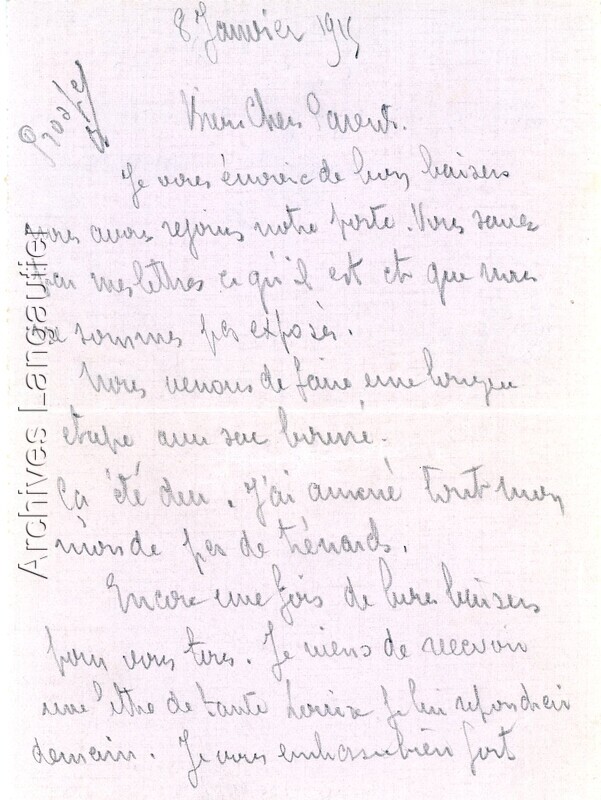 8 Janvier 1915
Mon Cher Parents.
Je vous envoie de bons baisers
nous avons rejoins notre poste. Vous savez
par mes lettres ce qu'il est et que nous
ne sommes pas exposés.
Nous venons de faire une longue
etape avec sac
Ça été dur. J'ai amené tout mon
monde pas de trénards.
Encore une fois de bons baisers
pour vous tous. Je viens de recevoir
une lettre de tante Louise Je lui repondrai
demain. Je vous embrasse bien fort
Archives Langautier